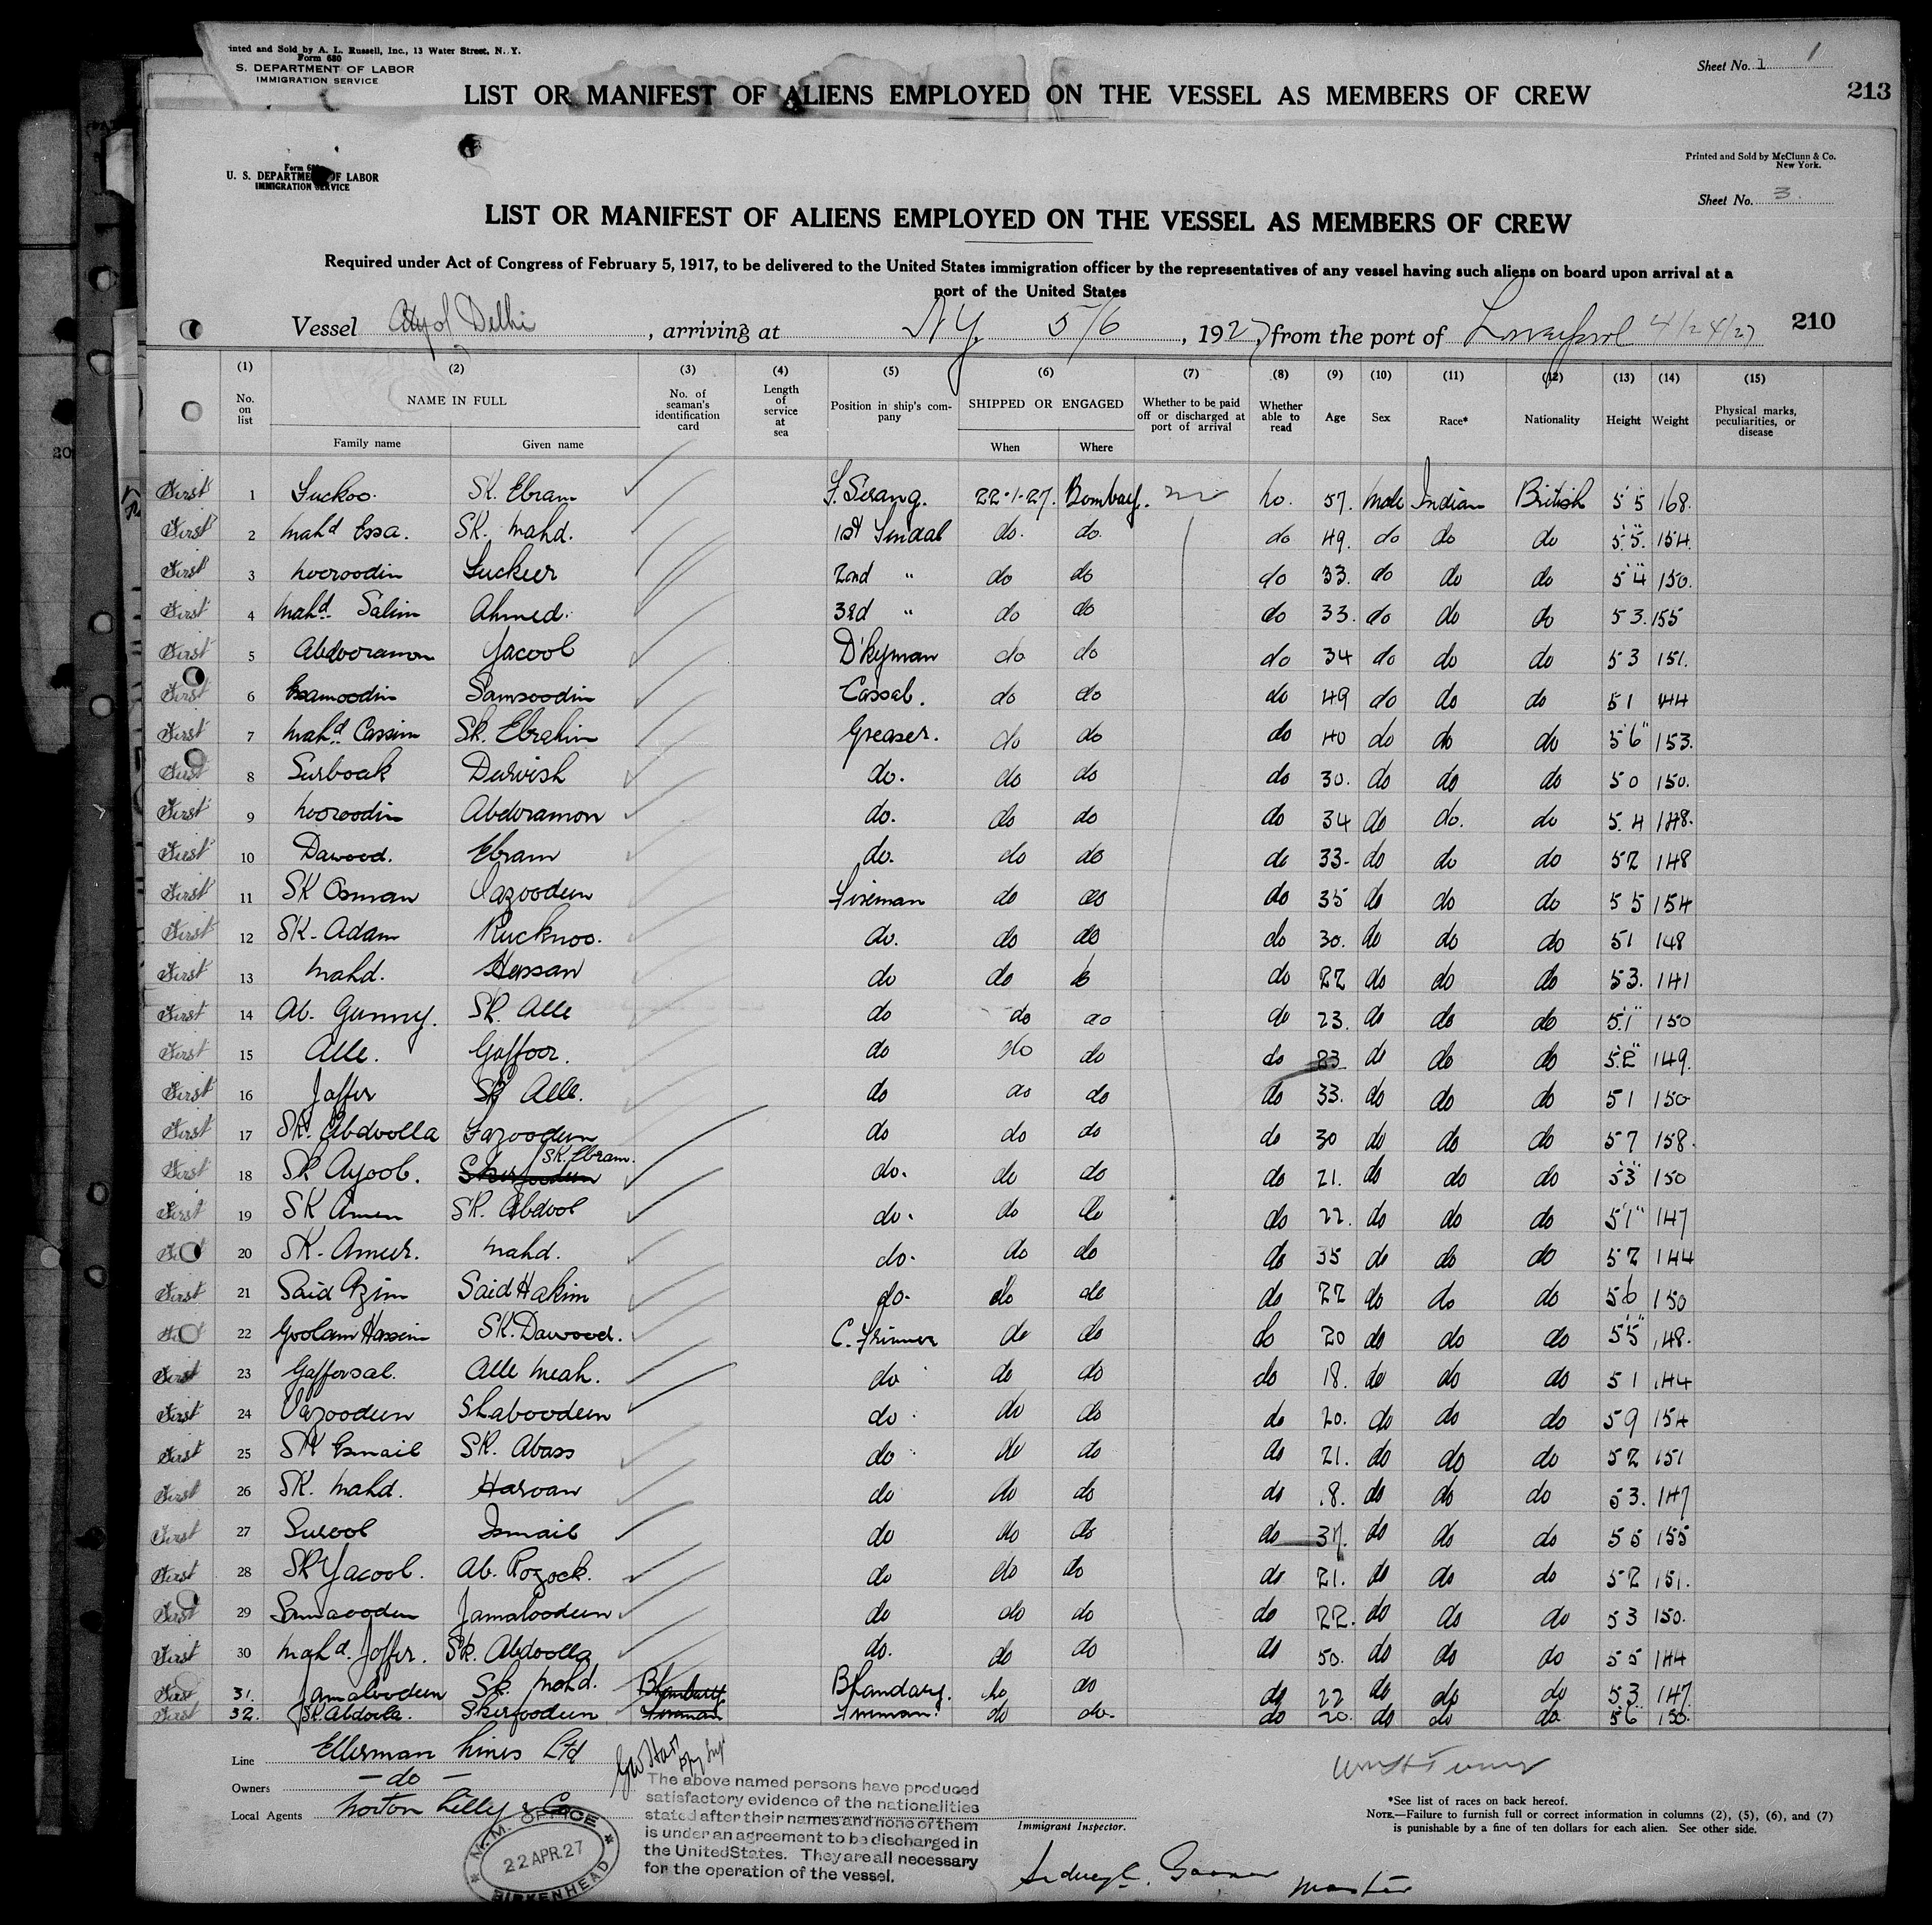 inted and Sold by A. L. Russell, Inc., 13 Water Street, N. Y.
Form 680
S. DEPARTMENT OF LABOR
IMMIGRATION SERVICE
Sheet No. 1 1
LIST OR MANIFEST OF ALIENS EMPLOYED ON THE VESSEL AS MEMBERS OF CREW
213
Printed and Sold by McClunn & Co.
New York.
Form 6
U. S. DEPARTMENT OF LABOR
IMMIGRATION SERVICE
Sheet No. 3.
LIST OR MANIFEST OF ALIENS EMPLOYED ON THE VESSEL AS MEMBERS OF CREW
Required under Act of Congress of February 5, 1917, to be delivered to the United States immigration officer by the representatives of any vessel having such aliens on board upon arrival at a
port of the United States
Vessel City of Delhi, arriving at N.Y. 5/6, 1927, from the port of Liverpool 4/24/27
210
(1) (2) (3) (4) (5) (6) (7) (8) (9) (10) (11) (12) (13) (14) (15)
No. on list NAME IN FULL No. of seaman's identification card Length of service at sea Position in ship's company SHIPPED OR ENGAGED Whether to be paid off or discharged at port of arrival Whether able to read Age Sex Race* Nationality Height Weight Physical marks, peculiarities, or disease
Family name Given name When Where
First 1 Suckoo. SK. Ebram F. Serang. 22-1-27. Bombay. no. 57. Male Indian British 5 5 168.
First 2 Mahd Essa. SK. Mahd. 1st Tindal do. do. do 49. do do do 5'5" 154.
First 3 Nooroodin Suckur 2nd " do do do 33. do do do 5'4" 150.
First 4 Mahd. Salim Ahmed. 3rd " do do do 33. do do do 5 3. 155
First 5 Abdooramon Yacoob D'kyman do do do 34 do do do 5 3 151.
First 6 Esamoodin Samsoodin Cassab. do do do 49 do do do 5 1 144
First 7 Mahd. Cassim Sk. Ebrahim Greaser. do do do 40 do do do 5'6" 153.
First 8 Surboak Durvish do. do do do 30. do do do 5 0 150.
First 9 Nooroodin Abdoramon do. do do do 34 do do. do 5. 4 148.
First 10 Dawood. Ebram do. do do do 33. do do do 5 2 148
First 11 SK Osman Vazoodeen Fireman do do do 35 do do do 5 5 154
First 12 SK. Adam Rucknoo. do. do do do 30. do do do 5 1 148
First 13 Mahd. Hassan do do do do 22 do do do 5 3. 141
First 14 Ab. Gunny. SK. Alle do do do do 23. do do do 5'1" 150
First 15 Alle. Gaffoor. do do do do 23 do do do 5'2" 149.
First 16 Jaffer SK Alle. do do do do 33. do do do 5 1 150
First 17 SK. Abdoolla Fazoodeen do do do do 30 do do do 5 7 158.
SK. Ebram.
First 18 SK Ayoob. Skerfoodeen do. do do do 21. do do do 5'3" 150
First 19 SK Amen SK. Abdool do. do do do 22. do do do 5'1" 147
20 SK. Ameer. Mahd. do. do do do 35 do do do 5 2 144
First 21 Said Azim Said Hakim do. do do do 22 do do do 5 6 150
22 Goolam Hassim SK. Dawood. C. Trimmer do do do 20 do do do 5'5" 148.
First 23 Gafforsab. Alle Meah. do do do do 18. do do do 5 1 144
First 24 Vazoodeen Shaboodeen do do do do 20. do do do 5 9 154
First 25 SK Esmail SK. Abass do do do do 21. do do do 5 2 151
First 26 SK. Mahd. Haroan do do do do 18. do do do 5 3. 147
First 27 Surool Ismail do do do do 37. do do do 5 5 155
First 28 SK Yacoob. Ab. Rozock. do do do do 21. do do do 5 2 151.
First 29 Samaooden Jamaloodeen do do do do 22. do do do 5 3 150.
First 30 Mahd. Joffer. Sk. Abdoolla do. do do do 50. do do do 5 5 144
First 31. Jamaloodeen Sk. Mahd. Bhandary. Bhandary. do do do 22 do do do 5 3 147.
First 32. SK Abdoola. Skerfoodeen Fireman Fireman. do do. do 20. do do do 5 6 150.
Line Ellerman Lines Ltd
Owners - do -
Local Agents Norton Lilly & Co
The above named persons have produced
satisfactory evidence of the nationalities
stated after their names and none of them
is under an agreement to be discharged in
the United States. They are all necessary
for the operation of the vessel.
M. M. OFFICE
22 APR. 27
BIRKENHEAD
Immigrant Inspector.
Master
*See list of races on back hereof.
NOTE.—Failure to furnish full or correct information in columns (2), (5), (6), and (7)
is punishable by a fine of ten dollars for each alien. See other side.